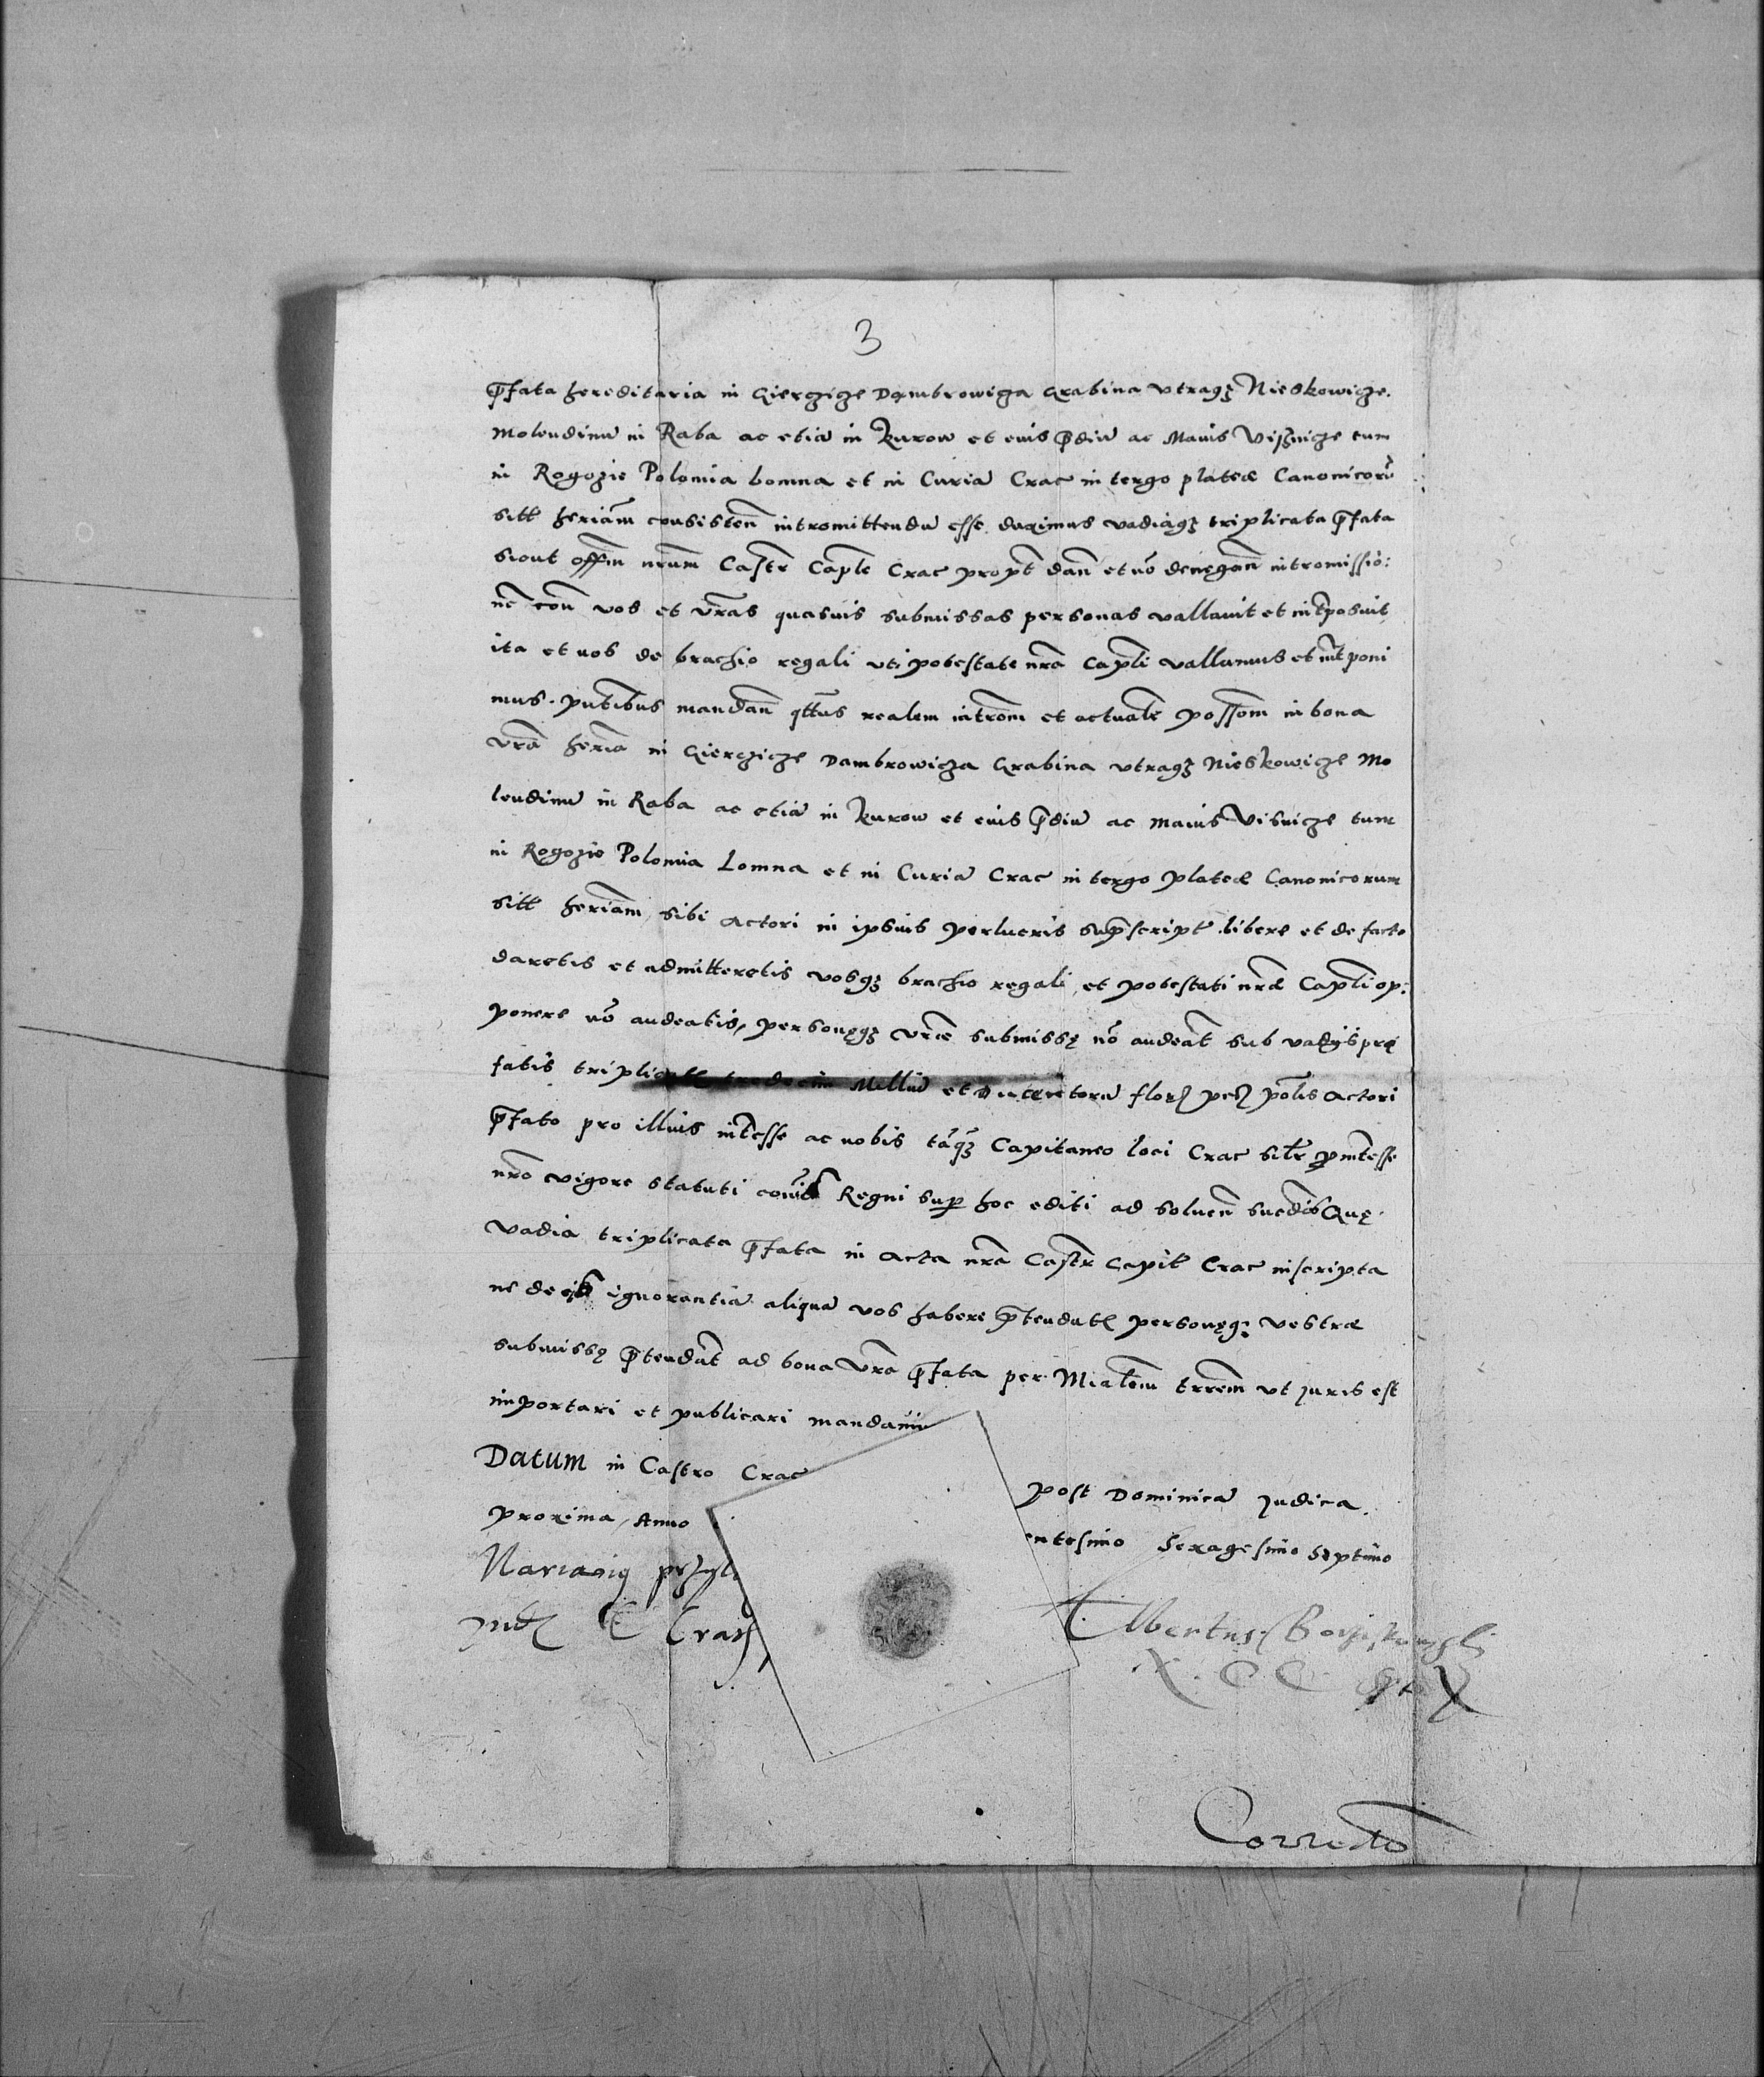 3
p̄fata hereditaria in Gierczicze Dambrowicza Grabina vtraqȝ Nieskowicze.
Molendinū in Raba ac etiā in Kurow et eius p̄diū ac Maius Visznicze tum
in Rogozie Polomia Lomna et in Curiā Crac in tergo plateæ Canonicorū
sitt̄ heriam̄ consisten̄ intromittendū esse duximus vadiaqȝ triplicata p̄fata
sicut offm̄ nrum̄ Castr̄ Caplē Crac propt̄ dan̄ et nō denegan̄ intromissio:
nē con̄ vos et vras̄ quasuis submissas personas vallauit et int̄posuit
ita et nos de brachio regali vti potestate nrā Caplī vallamus et int̄poni
mus. mandan̄ qtt̄us realem introm̄ et actualē possom̄ in bona
vrā heriā in Gierczicze Dambrowicza Grabina vtraqȝ Nieskowicze Mo
lendinū in Raba ac etiā in Kurow et eius p̄diū ac maius Visnicze tum
in Rogozie Polomia Lomna et in Curiā Crac in tergo plateæ Canonicorum
sitt̄ heriam̄ sibi Actori in ipsius perlucris sup̄script̄ libere et de facto
daretis et admitteretis vosqȝ brachio regali et potestati nrǣ Caplī op:
ponere nō audeatis, personęqȝ vrǣ submissę nō audeāt sub vadijs prę
fatis triplicatis tredecim Milliū et ducentorū floȝ pecȝ polis Actori
p̄fato pro illius int̄esse ac nobis tāqȝ Capitaneo loci Crac silr̄ p̄ int̄esse
nrō vigore statuti Regni sup̄ hoc editi ad soluen̄ succedis Quę
vadia triplicata p̄fata in Acta nrā Castr̄ Capit̄ Crac inscripta
ne de ignorantiā aliquā vos habere p̄tendatȝ personęqȝ vestræ
submissę p̄tendāt ad bona vrā p̄fata per Mialem̄ trrem̄ vt juris est
importari et publicari mandauim
Datum in Castro Crac post Dominicā Judica
proxima, Anno entesimo Sexagesimo Septimo
Albertus
Correcto